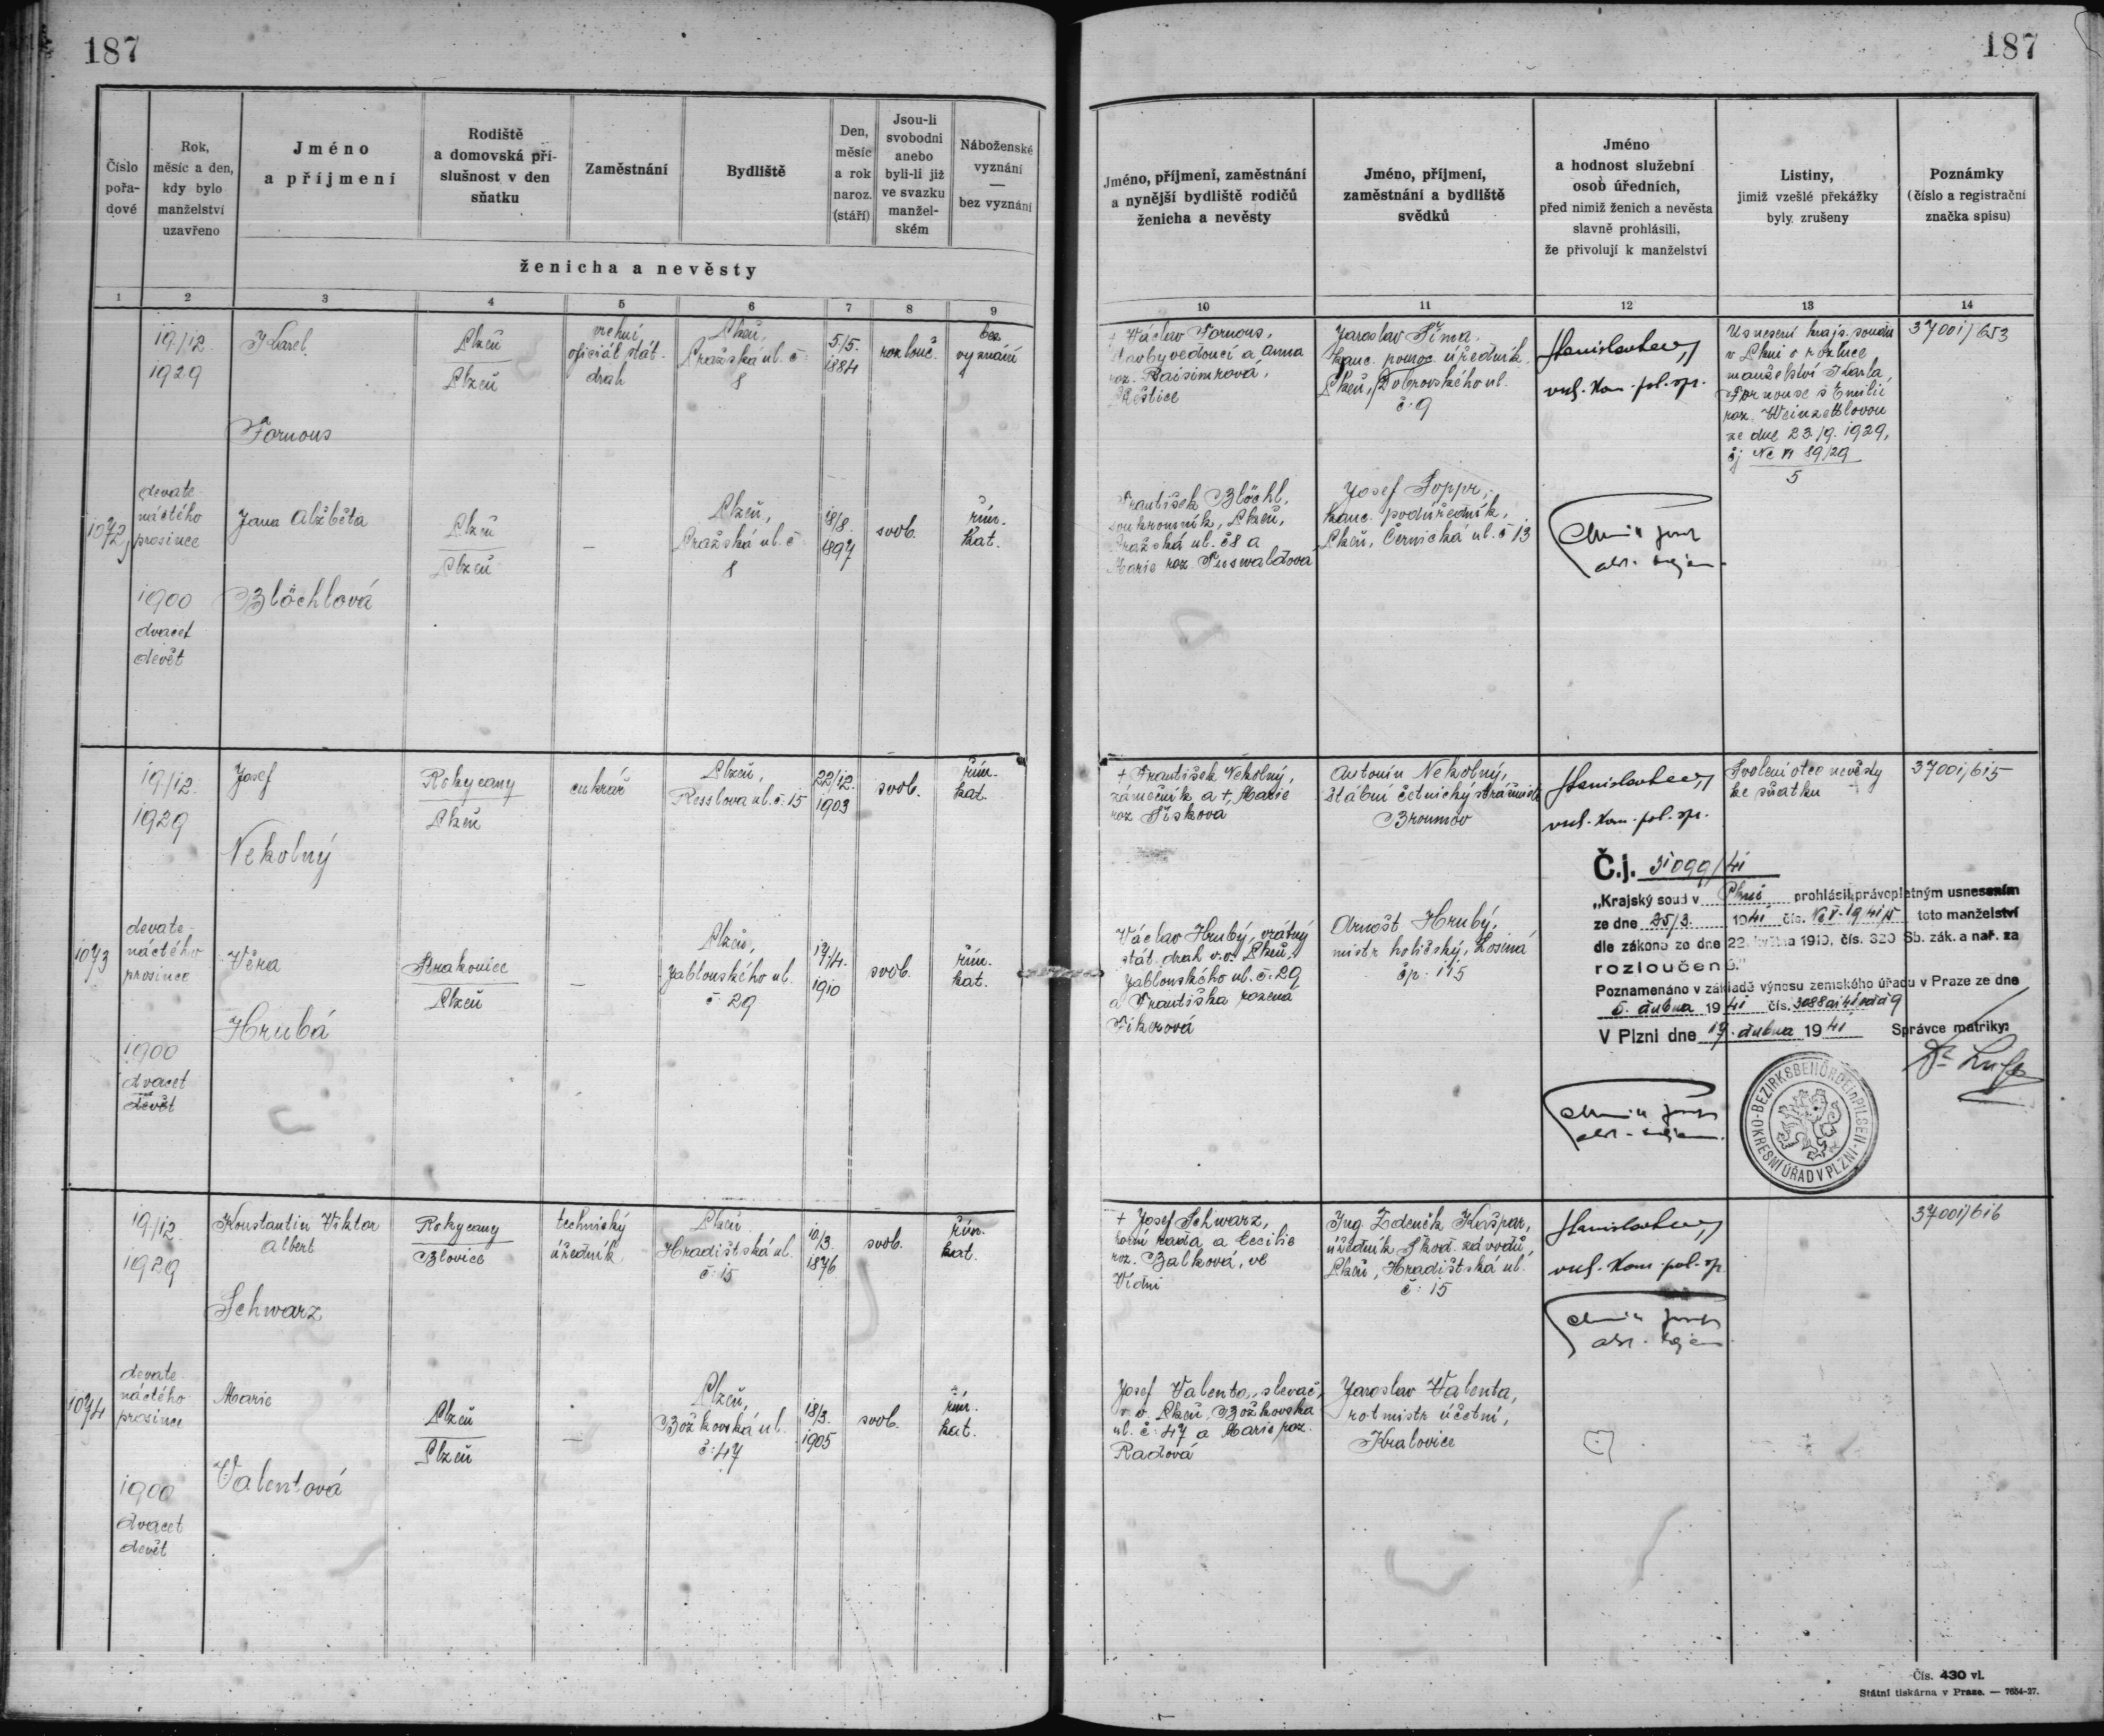 187
187
Číslo
pořa-
dové
Rok,
měsíc a den,
kdy bylo
manželství
uzavřeno
Jméno
a příjmení
Rodiště
a domovská pří-
slušnost v den
sňatku
Zaměstnání
Bydliště
Den,
měsíc
a rok
naroz.
(stáří)
Jsou-li
svobodni
anebo
byli-li již
ve svazku
manžel-
ském
Náboženské
vyznání
—
bez vyznání
ženicha a nevěsty
Jméno, příjmení, zaměstnání
a nynější bydliště rodičů
ženicha a nevěsty
Jméno, příjmení,
zaměstnání a bydliště
svědků
Jméno
a hodnost služební
osob úředních,
před nimiž ženich a nevěsta
slavně prohlásili,
že přivolují k manželství
Listiny,
jimiž vzešlé překážky
byly zrušeny
Poznámky
(číslo a registrační
značka spisu)
1 2 3 4 5 6 7 8 9
10 11 12 13 14
1072
19./12.
1929
devate-
náctého
prosince
1900
dvacet
devět
Karel
Fornous
Plzeň
Plzeň
vrchní
oficiál stát.
drah
Plzeň,
Pražská ul. č.
8
5/5.
1884
rozlouč.
bez
vyznání
+ Václav Fornous,
stavbyvedoucí a Anna
roz.
Přeštice
Jaroslav Šíma,
kanc. pomoc. úředník,
Plzeň, Dobrovského ul.
č. 9
Usnesení kraj. soudu
v Plzni o rozluce
manželství Karla
Fornouse s Emilií
roz.
ze dne 23./9. 1929,
čj Nc VI 89/29
5
37001/653
Jana Alžběta
Blöchlová
Plzeň
Plzeň
—
Plzeň,
Pražská ul. č.
8
18/8.
1897
svob.
řím.
kat.
František Blöchl,
soukromník, Plzeň,
Pražská ul. č 8 a
Marie roz.
Josef Soppr,
kanc. podúředník,
Plzeň, Černická ul. č 13
1073
19/12.
1929
devate-
náctého
prosince
1900
dvacet
devět
Josef
Nekolný
Rokycany
Plzeň
cukrář
Plzeň,
Resslova ul. č. 15
22/12.
1903
svob.
řím.
kat.
+ František Nekolný,
zámečník a +, Marie
roz. Šíšková
Antonín Nekolný,
štábní četnický strážmistr
Broumov
Svolení otce nevěsty
ke sňatku
37001/615
Věra
Hrubá
Strakonice
Plzeň
—
Plzeň,
Jablonského ul.
č. 29
17/4.
1910
svob.
řím.
kat.
Václav Hrubý, vrátný
stát. drah v. v. Plzeň,
Jablonského ul. č. 29
a Františka rozená
Fikerová
Arnošt Hrubý,
mistr holičský, Losiná
čp. 115
Č.j. 31099/41
„Krajský soud v Plzni prohlásil právoplatným usnesením
ze dne 25/3. 1941 čís. toto manželství
dle zákona ze dne 22. května 1919, čís. 320 Sb. zák. a nař. za
rozloučené."
Poznamenáno v základě výnosu zemského úřadu v Praze ze dne
5. dubna 1941 čís.
V Plzni dne 19. dubna 1941 Správce matriky:
BEZIRKSBEHÖRDE in PILSEN
OKRESNÍ ÚŘAD V PLZNI
1074
19./12.
1929
devate-
náctého
prosince
1900
dvacet
devět
Konstantin Viktor
Albert
Schwarz
Rokycany
Blovice
technický
úředník
Plzeň
Hradištská ul.
č. 15
10/3.
1876
svob.
řím.
kat.
+ Josef Schwarz,
horní rada a Cecilie
roz. Balková, ve
Vídni
Ing. Zdeněk Kašpar,
úředník Škod. závodů,
Plzeň, Hradištská ul.
č. 15
37001/616
Marie
Valentová
Plzeň
Plzeň
—
Plzeň,
Božkovská ul.
č. 47
18/3.
1905
svob.
řím.
kat.
Josef Valenta, slevač,
v. v. Plzeň, Božkovská
ul. č. 47 a Marie roz.
Radová
Jaroslav Valenta,
rotmistr účetní,
Kralovice
Čís. 430 vl.
Státní tiskárna v Praze. — 7654-27.